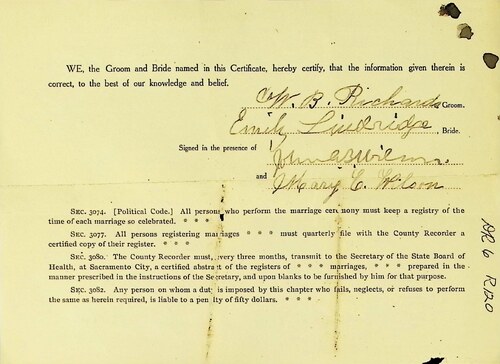 WE, the Groom and Bride named in this Certificate, hereby certify, that the information given therein is
correct, to the best of our knowledge and belief.
W. B. Richards Groom.
Emily Lindridge, Bride.
Signed in the presence of
John A. Wilson.
and
Mary C. Wilson
SEC. 3074. [Political Code.] All persons who perform the marriage ceremony must keep a registry of the
time of each marriage so celebrated. * * *
SEC. 3077. All persons registering marriages * * * must quarterly file with the County Recorder a
certified copy of their register. * * *
SEC. 3080. The County Recorder must, every three months, transmit to the Secretary of the State Board of
Health, at Sacramento City, a certified abstract of the registers of * * * marriages, * * * prepared in the
manner prescribed in the instructions of the Secretary, and upon blanks to be furnished by him for that purpose.
SEC. 3082. Any person on whom a duty is imposed by this chapter who fails, neglects, or refuses to perform
the same as herein required, is liable to a penalty of fifty dollars. * * *